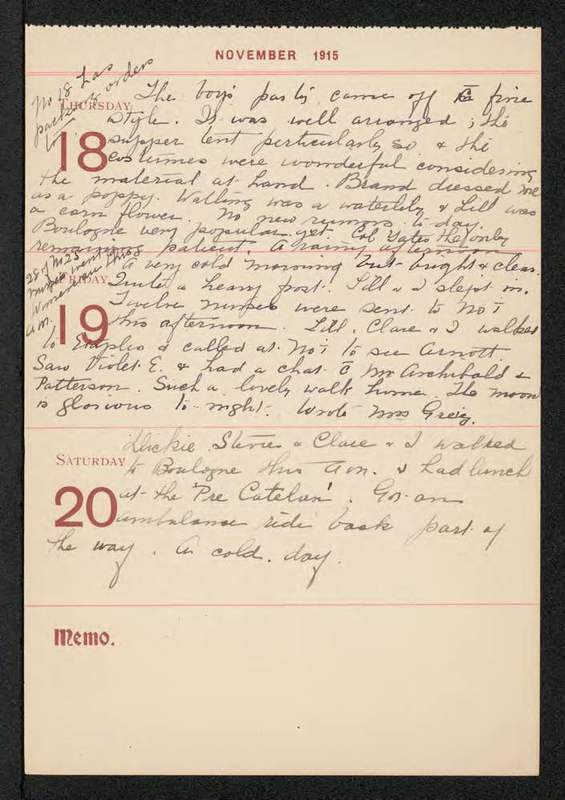 NOVEMBER 1915
No 18 has
packed & orders
to
THURSDAY
18
The boys' party came off c̄ fine
style. It was well arranged; the
supper tent particularly so & the
costumes were wonderful considering
the material at hand. Brand dressed me
as a poppy. Walling was a waterlily & Lill was
a corn flower. No new rumors to-day.
Boulogne very popular yet. Col Yates the only
remaining patient. A rainy afternoon
28 of M 25
nurses went
this
a.m.
FRIDAY
19
A very cold morning but bright & clear.
Quite a heavy frost. Lill & I slept in.
Twelve nurses were sent to No 1
this afternoon. Lill, Clare & I walked
to Etaples & called at No 1 to see Arnott.
Saw Violet E. & had a chat c̄ Mr Archibald &
Patterson. Such a lovely walk home. The moon
is glorious to-night. Wrote Mrs Greig.
SATURDAY
20
Dickie Stevie & Clare & I walked
to Boulogne this a.m. & had lunch
at the 'Pre Catelan'. Got an
ambulance ride back part of
the way. A cold. day.
Memo.